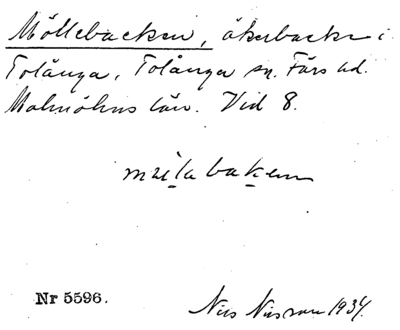 Möllebacken, åkerbacke i
Tolånga, Tolånga sn. Färs hd.
Malmöhus län. Vid 8.
baken
Nr 5596.
Nils Nilsson 1934.